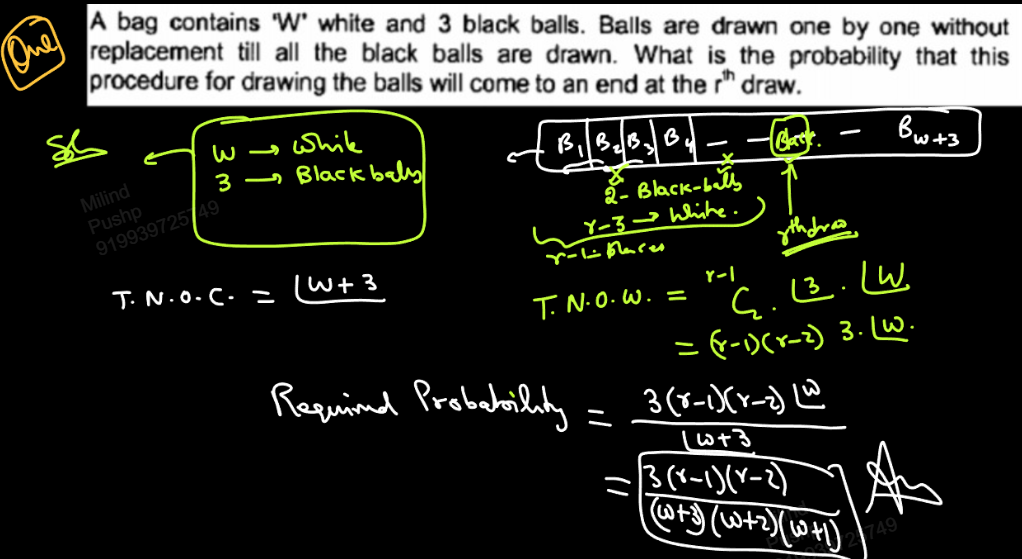 One
A bag contains 'W' white and 3 black balls. Balls are drawn one by one without
replacement till all the black balls are drawn. What is the probability that this
procedure for drawing the balls will come to an end at the rth draw.
Sol
W → White
3 → Black balls
B1 B2 B3 B4 – – Black. – BW+3
2- Black-balls
r-3 → White.
r-1- Places
rth draw
T.N.O.C. = ⌊W+3
T.N.O.W. = r-1C2 . ⌊3 . ⌊W
= (r-1)(r-2) 3. ⌊W.
Required Probability = 3(r-1)(r-2)⌊W / ⌊W+3
= 3(r-1)(r-2) / (W+3)(W+2)(W+1) Ans
Milind
Pushp
919939725749